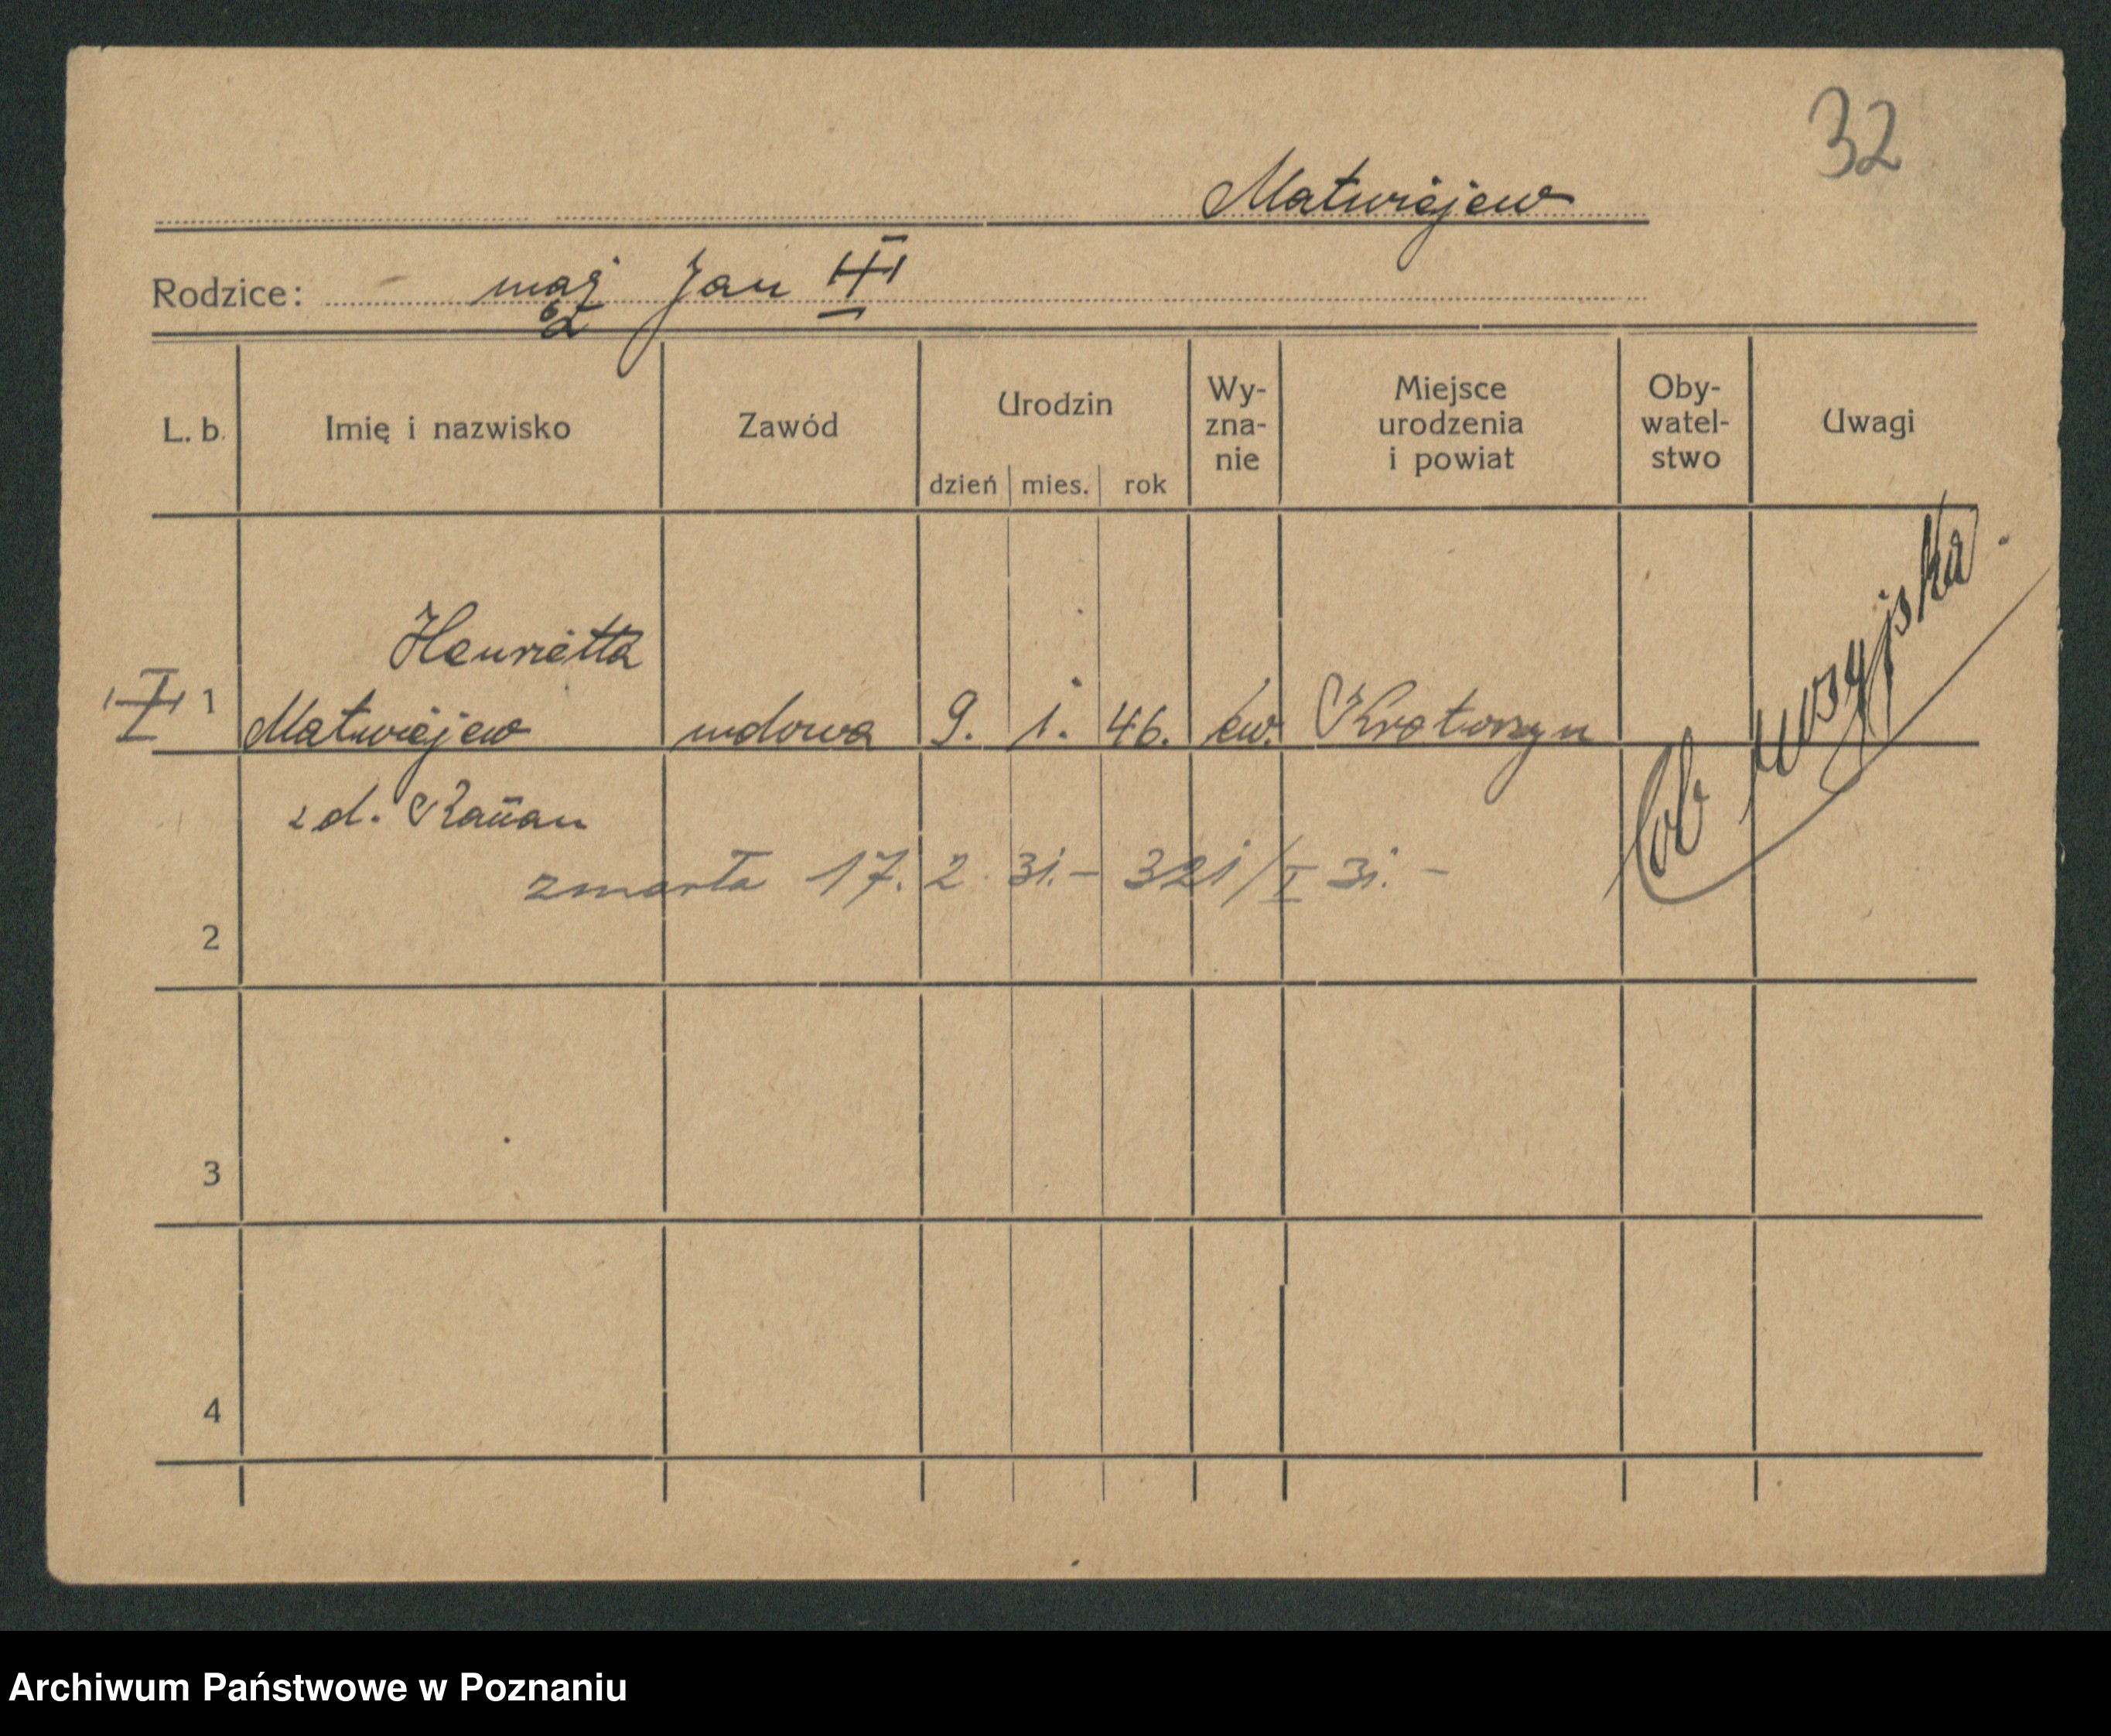 32
Matwiejew
Rodzice: mąż Jan
L. b. Imię i nazwisko Zawód Urodzin dzień mies. rok Wy- zna- nie Miejsce urodzenia i powiat Oby- watel- stwo Uwagi
Henrietta
1 Matwiejew wdowa 9. 1. 46. ew. Krotoszyn
ob rosyjska.
zd.
zmarła 17. 2. 31. – 321/I 31. –
2
3
4
Archiwum Państwowe w Poznaniu